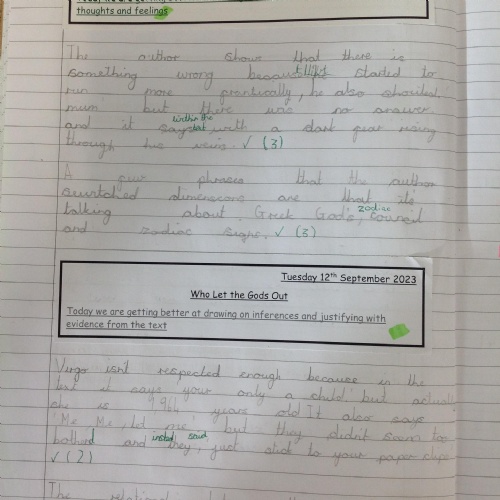 thoughts and feelings
The author shows that there is
something wrong because Elliot started to
run more frantically, he also shouted
mum but there was no answer
within the
and it says text with a dark fear rising
through his veins. ✓ (3)
A few phrases that the author
switched dimensions are that its
zodiac
talking about Greek God's, council
and zodiac signs. ✓ (3)
Tuesday 12th September 2023
Who Let the Gods Out
Today we are getting better at drawing on inferences and justifying with
evidence from the text
Virgo isn't respected enough because in the
text it says your only a child but actually
she is 1,964 years old It also says
"Me Me, let me" but they didn't seem too
instead said
bothered and they, just stick to your paper clips
✓ (2)
The